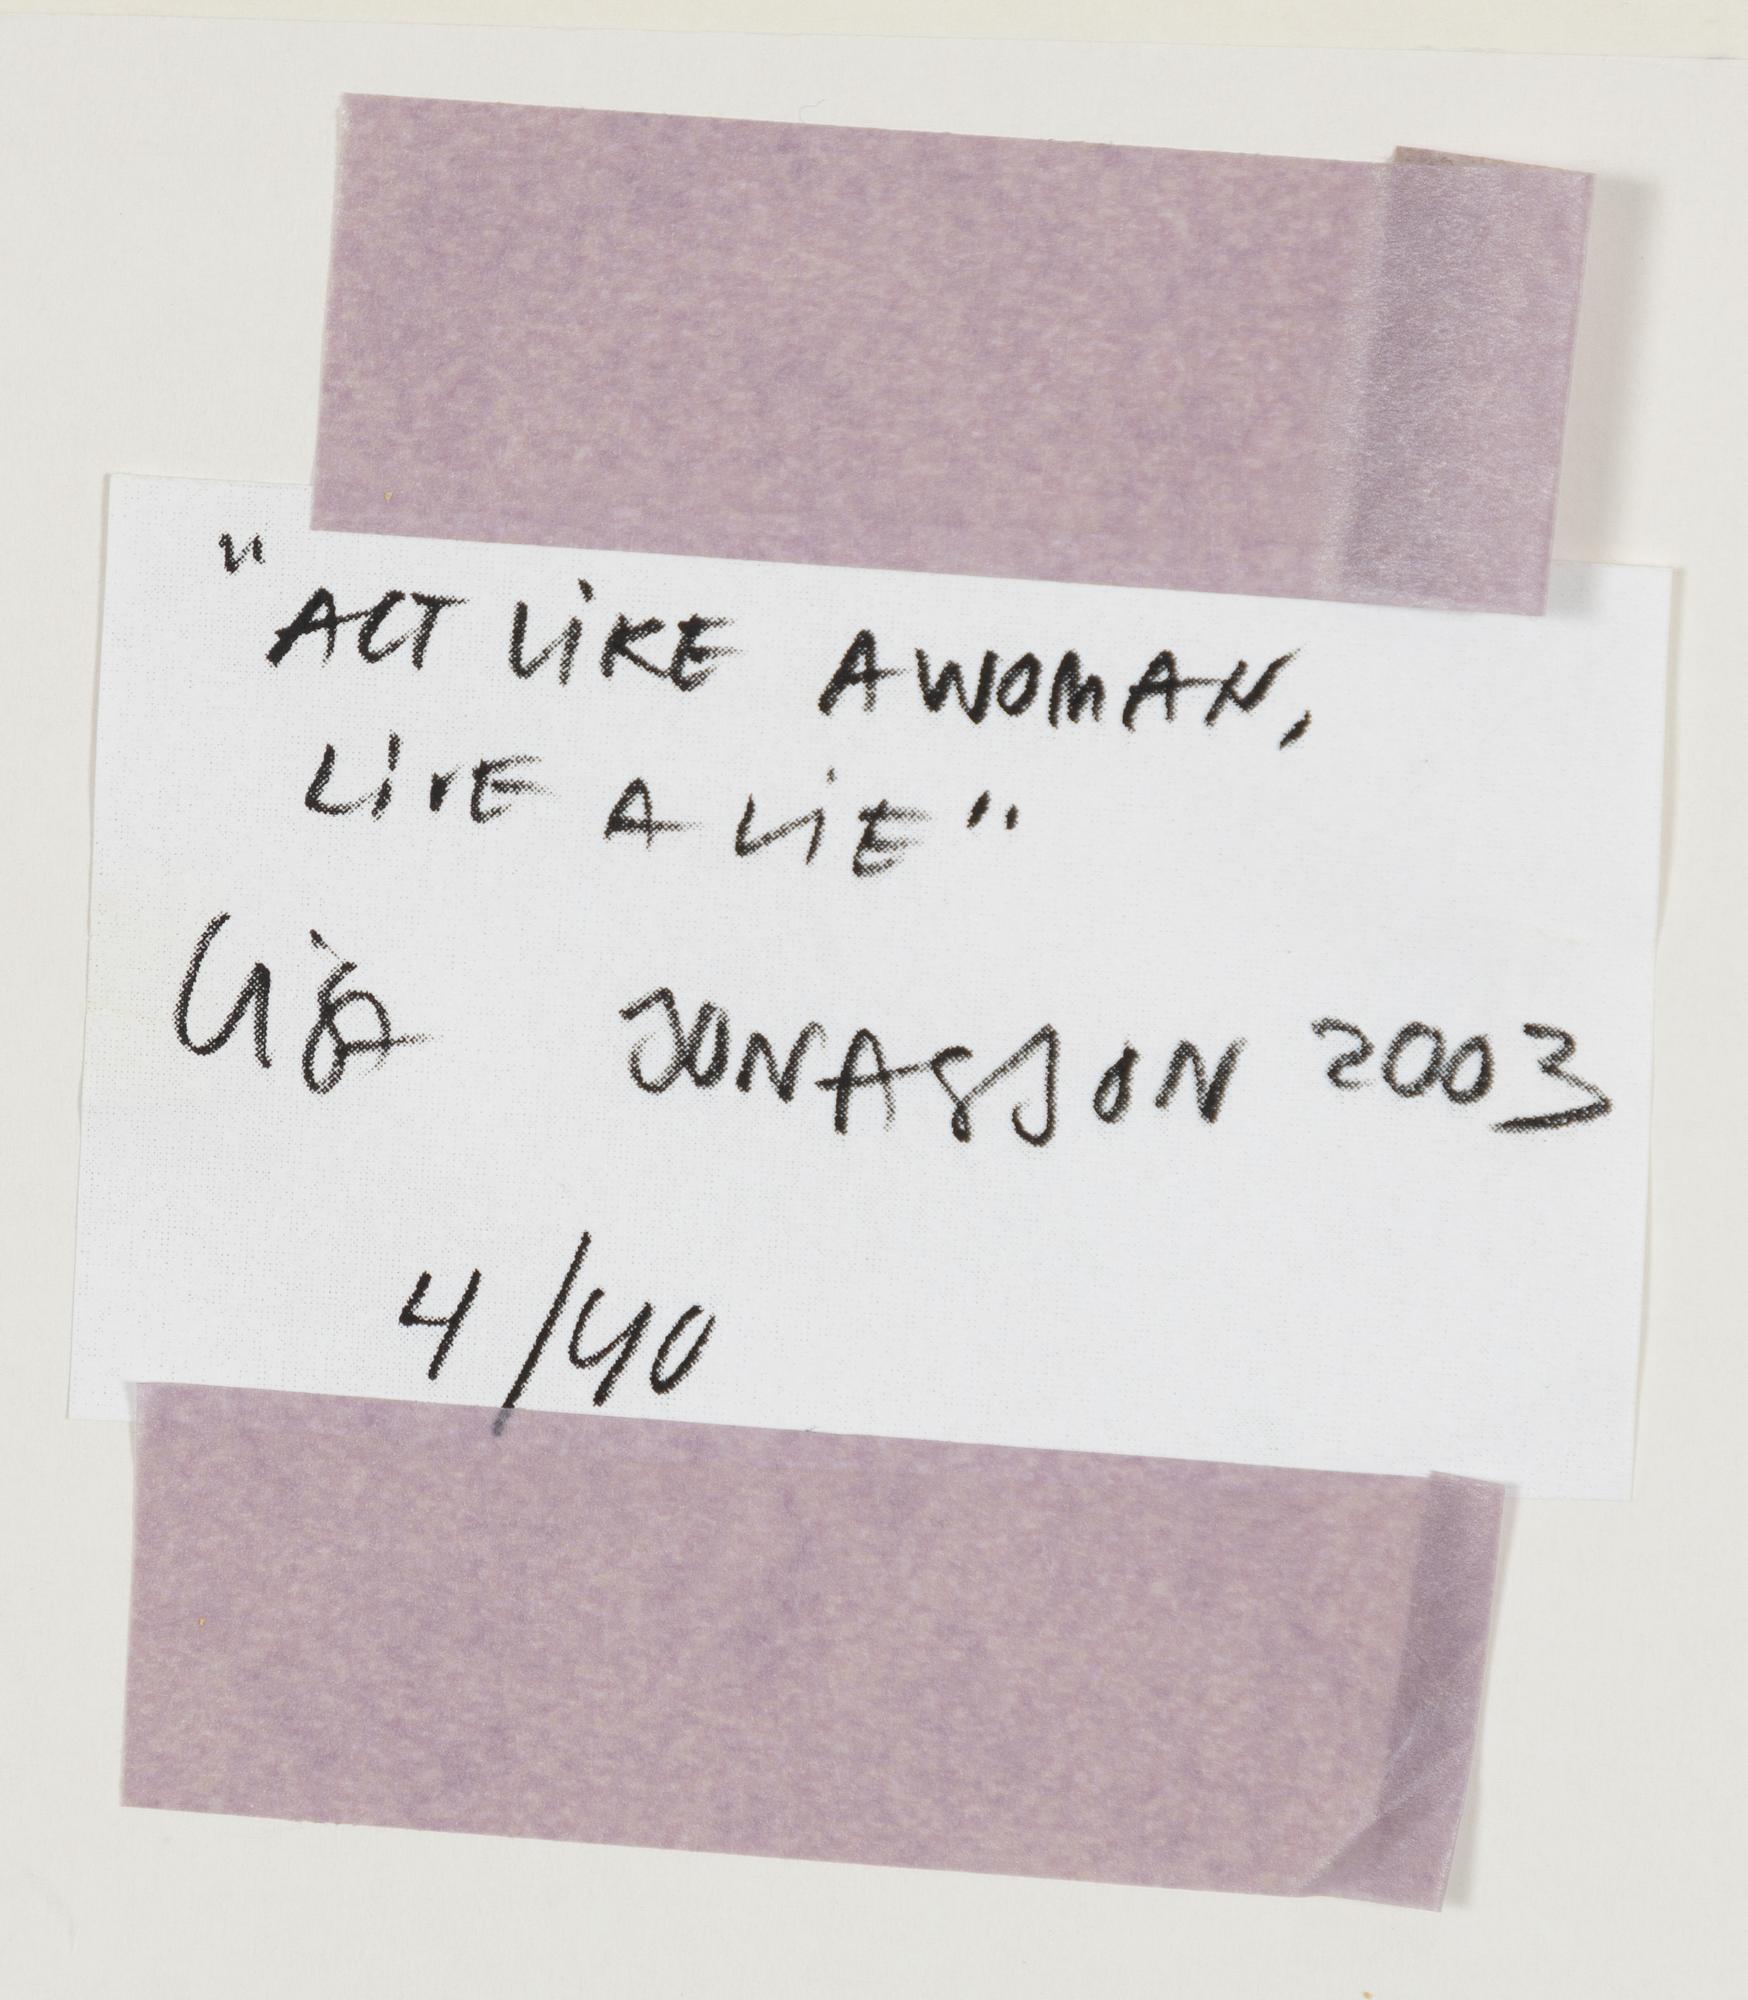 "ACT LiKE A WOMAN,
LiVE A LiE"
LiSA JONASSON 2003
4/40